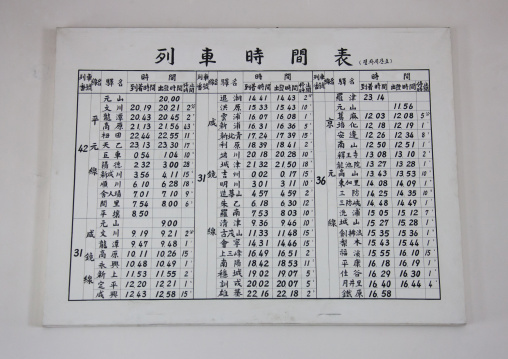 列車時間表
列車番號 線名 驛名 時間 到着時間 出發時間
42 平元線
元山 20.00
文川 20.19 20.21 2"
龍潭 20.43 20.45 2"
高原 21.13 21.56 43
天乙 23.13 23.30 17
巨東 0.54 1.04 10
陽德 2.32 3.00 28
新成川 3.56 4.11 15
順川 6.10 6.28 18
間里 7.54 8.00 6"
平壤 8.50
31 咸鏡線
元山 9.00
文川 9.19 9.21 2"
龍潭 9.47 9.48 1"
高原 10.11 10.26 15
永興 10.48 10.49 1"
新上 11.53 11.55 2"
定平 12.20 12.21 1"
咸興 12.43 12.58 15
列車番號 線名 驛名 時間 到着時間 出發時間
31 咸鏡線
退潮 14.41 14.43 2"
洪原 15.33 15.43 10
雲浦 16.07 16.08 1"
新浦 16.31 16.36 5"
新北青 17.24 17.39 15
利原 18.39 18.41 2"
端川 20.18 20.28 10
城津 21.32 21.50 18
吉州 0.02 0.17 15
明川 3.01 3.11 10
朱乙 6.18 6.30 12
羅南 7.53 8.03 10
清津 9.36 9.46 10
古茂山 11.33 11.48 15
會寧 14.31 14.46 15
上三峰 16.49 16.51 2"
南陽 18.42 18.53 11
穩城 19.02 19.07 5"
訓戎 20.02 20.07 5"
雄基 22.16 22.18 2"
羅津 23.14
36 京元線
元山 11.56
葛麻 12.03 12.08 5"
培化 12.18 12.19 1"
安邊 12.26 12.34 8
南山 12.50 12.51 1"
釋王寺 13.08 13.10 2"
龍池院 13.27 13.28 1"
高山 13.43 13.53 10
三防 14.25 14.35 10
三防峽 14.48 14.49 1"
洗浦 15.05 15.12 7
劍拂浪 15.35 15.36 1"
福溪 15.55 16.10 15
平康 16.18 16.19 1"
佳谷 16.29 16.30 1"
月井里 16.40 16.44 4"
鐵原 16.58